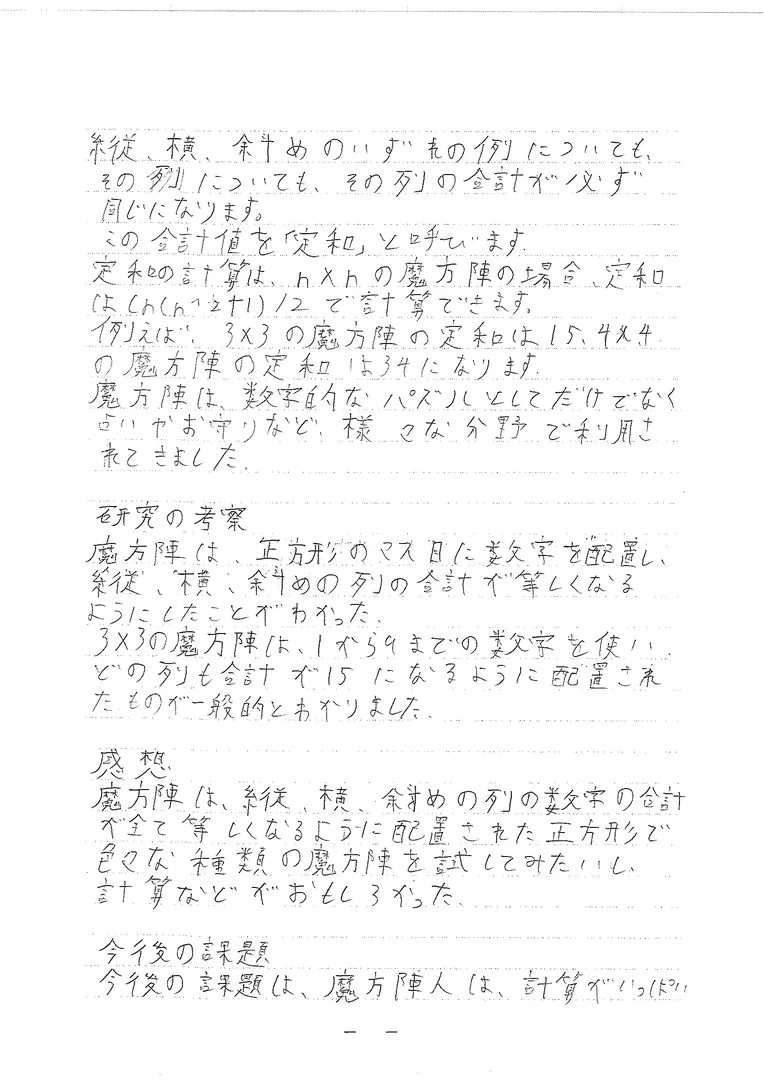 縦、横、斜めのいずれの例についても、
その列についても、その列の合計が必ず
同じになります。
この合計値を「定和」と呼びます.
定和の計算は、n×nの魔方陣の場合、定和
は(n(n^2+1)/2で計算できます。
例えば、3×3の魔方陣の定和は15、4×4
の魔方陣の定和は34になります.
魔方陣は、数字的なパズルとしてだけでなく
占いやお守りなど、様々な分野で利用さ
れてきました.
研究の考察
魔方陣は、正方形のマス目に数字を配置し、
縦、横、斜めの列の合計が等しくなる
ようにしたことがわかった.
3×3の魔方陣は、1から9までの数字を使い、
どの列も合計が15になるように配置され
たものが一般的とわかりました.
感想
魔方陣は、縦、横、斜めの列の数字の合計
が全て等しくなるように配置された正方形で
色々な種類の魔方陣を試してみたいし、
計算などがおもしろかった.
今後の課題
今後の課題は、魔方陣人は、計算がいっぱい